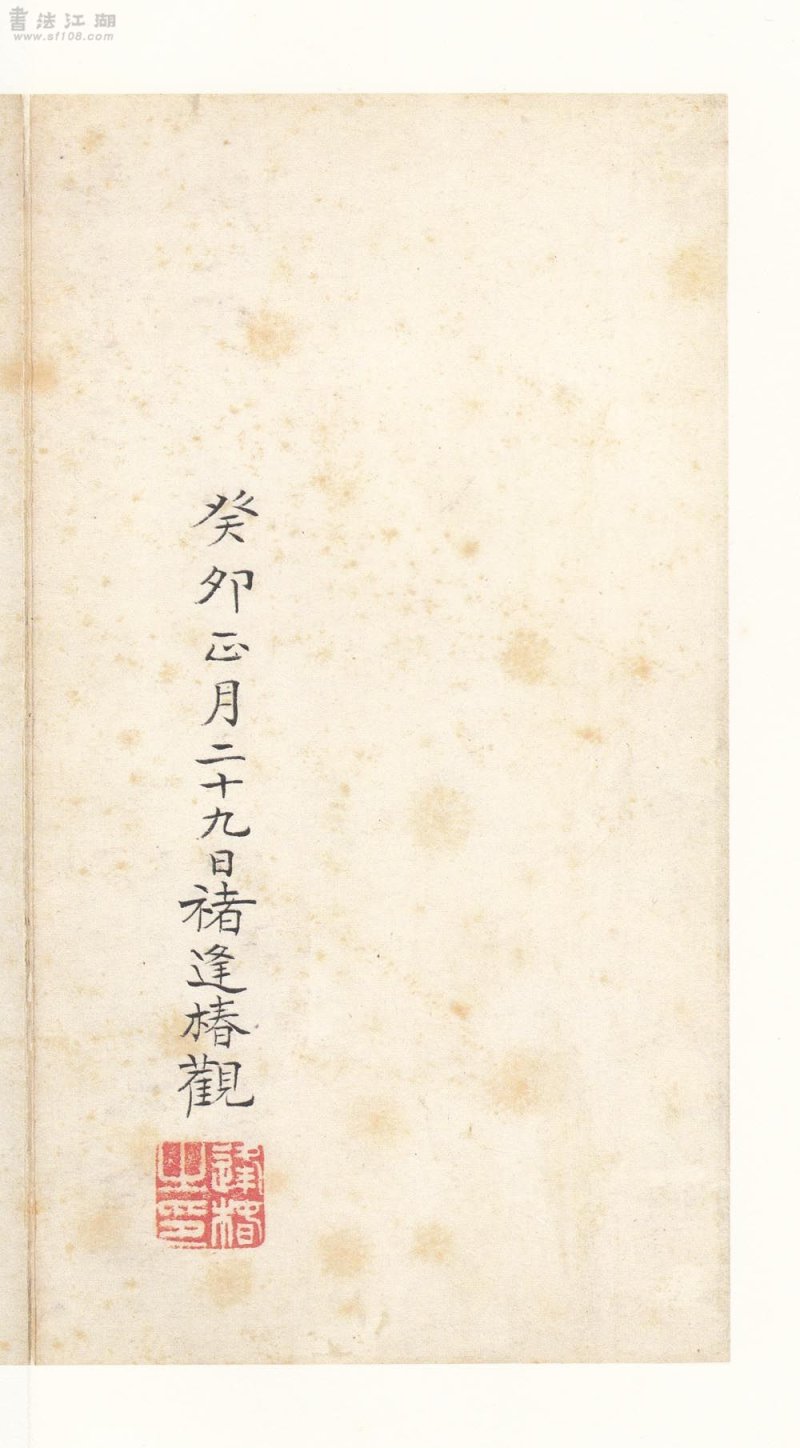 書法江湖
www.sf108.com
癸卯正月二十九日褚逢椿觀
逢椿之印